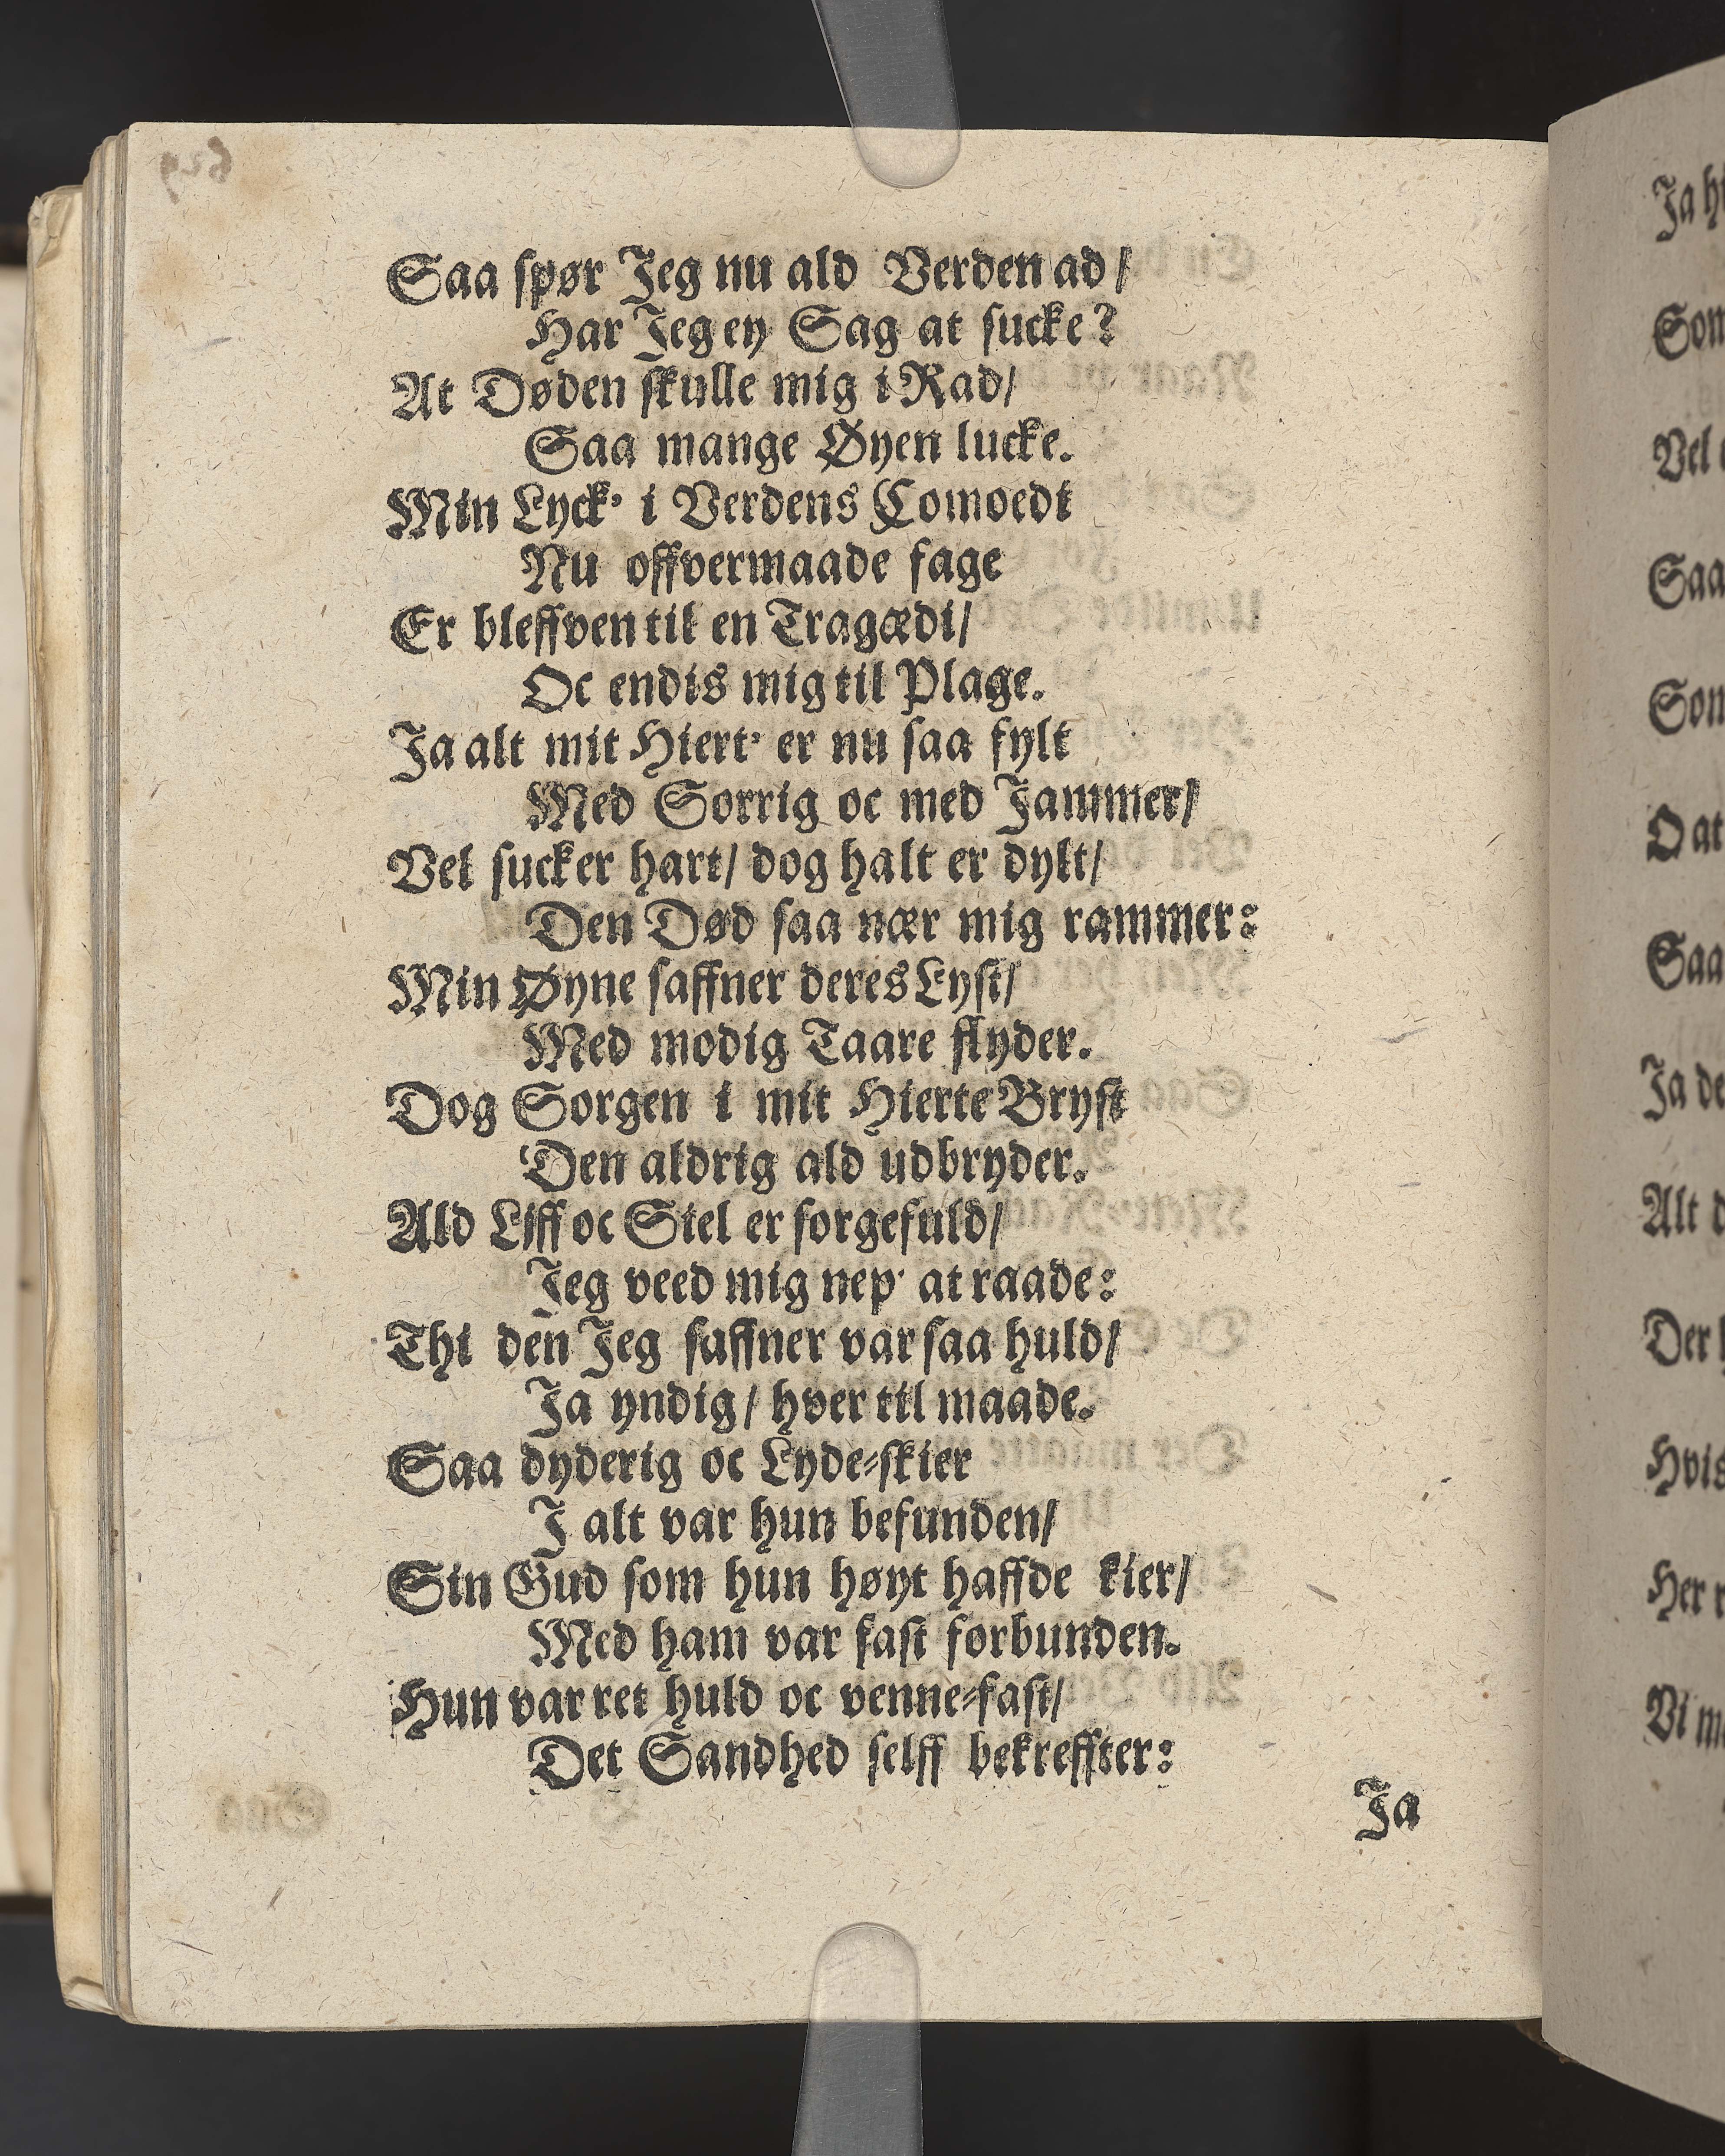 Saa spør Jeg nu ald Verden ad/
Har Jeg ey Sag at sucke?
At Døden skulle mig i Rad/
Saa mange Øyen lucke.
Min Lyck' i Verdens Comoedi
Nu offvermaade fage
Er bleffven til en Tragædi/
Oc endis mig til Plage.
Ja alt mit Hiert' er nu saa fylt
Med Sorrig oc med Jammer/
Vel sucker hart/ dog halt er dylt/
Den Død saa nær mig rammer:
Min Øyne saffner deres Lyst/
Med modig Taare flyder.
Dog Sorgen i mit Hierte Bryst
Den aldrig ald udbryder.
Ald Liff oc Siel er sorgefuld/
Jeg veed mig nep' at raade:
Thi den Jeg saffner var saa huld/
Ja yndig/ hver til maade.
Saa dyderig oc Lyde-skier
J alt var hun befunden/
Sin Gud som hun høyt haffde kier/
Med ham var fast forbunden.
Hun var ret huld oc venne-fast/
Det Sandhed selff bekreffter:
Ja
Som
Vel
Saa
Som
O at
Saa
Ja de
Alt
Der
Hvis
Her
Vi